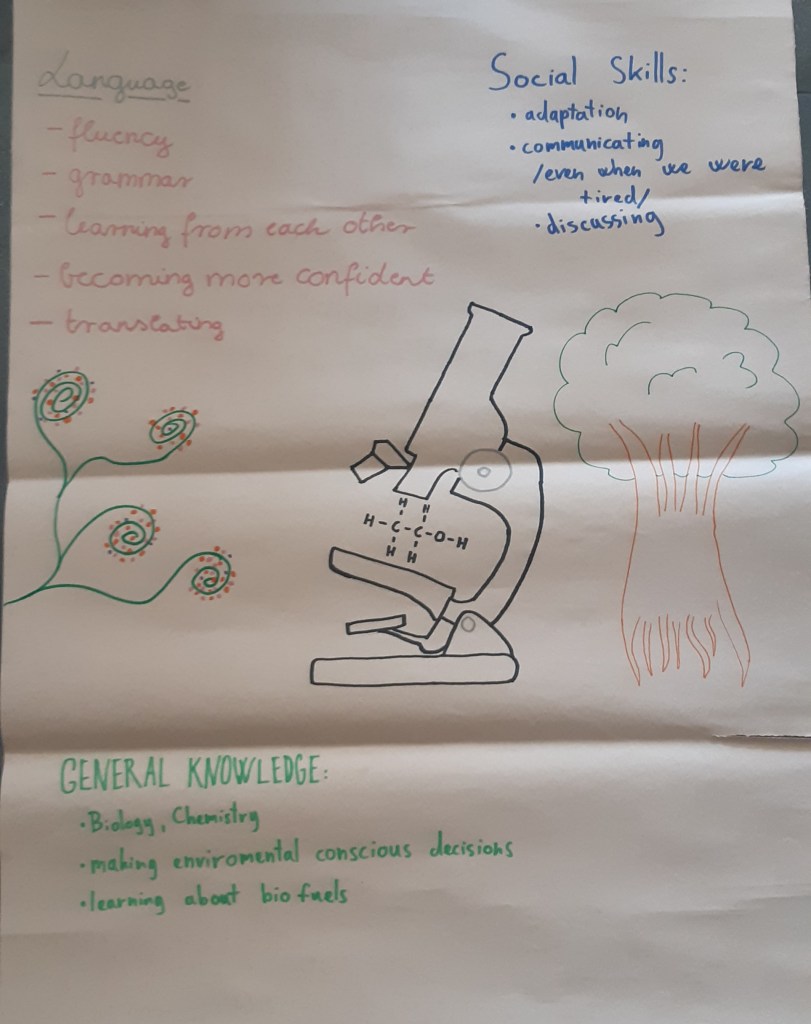 Language
- fluency
- grammar
- learning from each other
- becoming more confident
- translating
Social Skills:
• adaptation
• communicating
/even when we were
tired/
• discussing
H H
H-C-C-O-H
H H
GENERAL KNOWLEDGE:
• Biology, Chemistry
• making enviromental conscious decisions
• learning about bio fuels